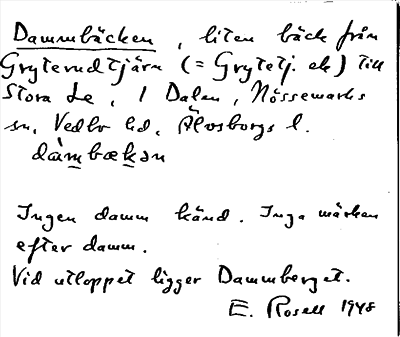 Dammbäcken, liten bäck från
Gryterudtjärn (= Grytetj. ek) till
Stora Le, i Dalen, Nössemarks
sn, Vedbo hd, Älvsborgs l.
dàm̲bæk̲ən
Ingen damm känd. Inga märken
efter damm.
Vid utloppet ligger Dammberget.
E. Rosell 1948